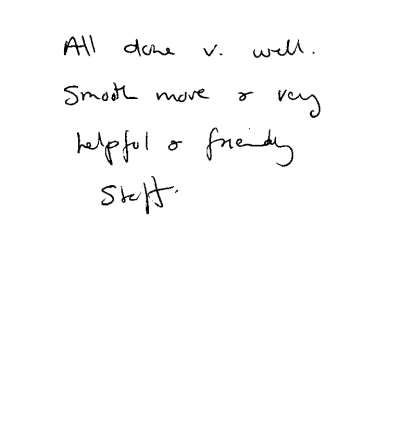 All done v. well.
Smooth move & very
helpful & friendly
Staff.